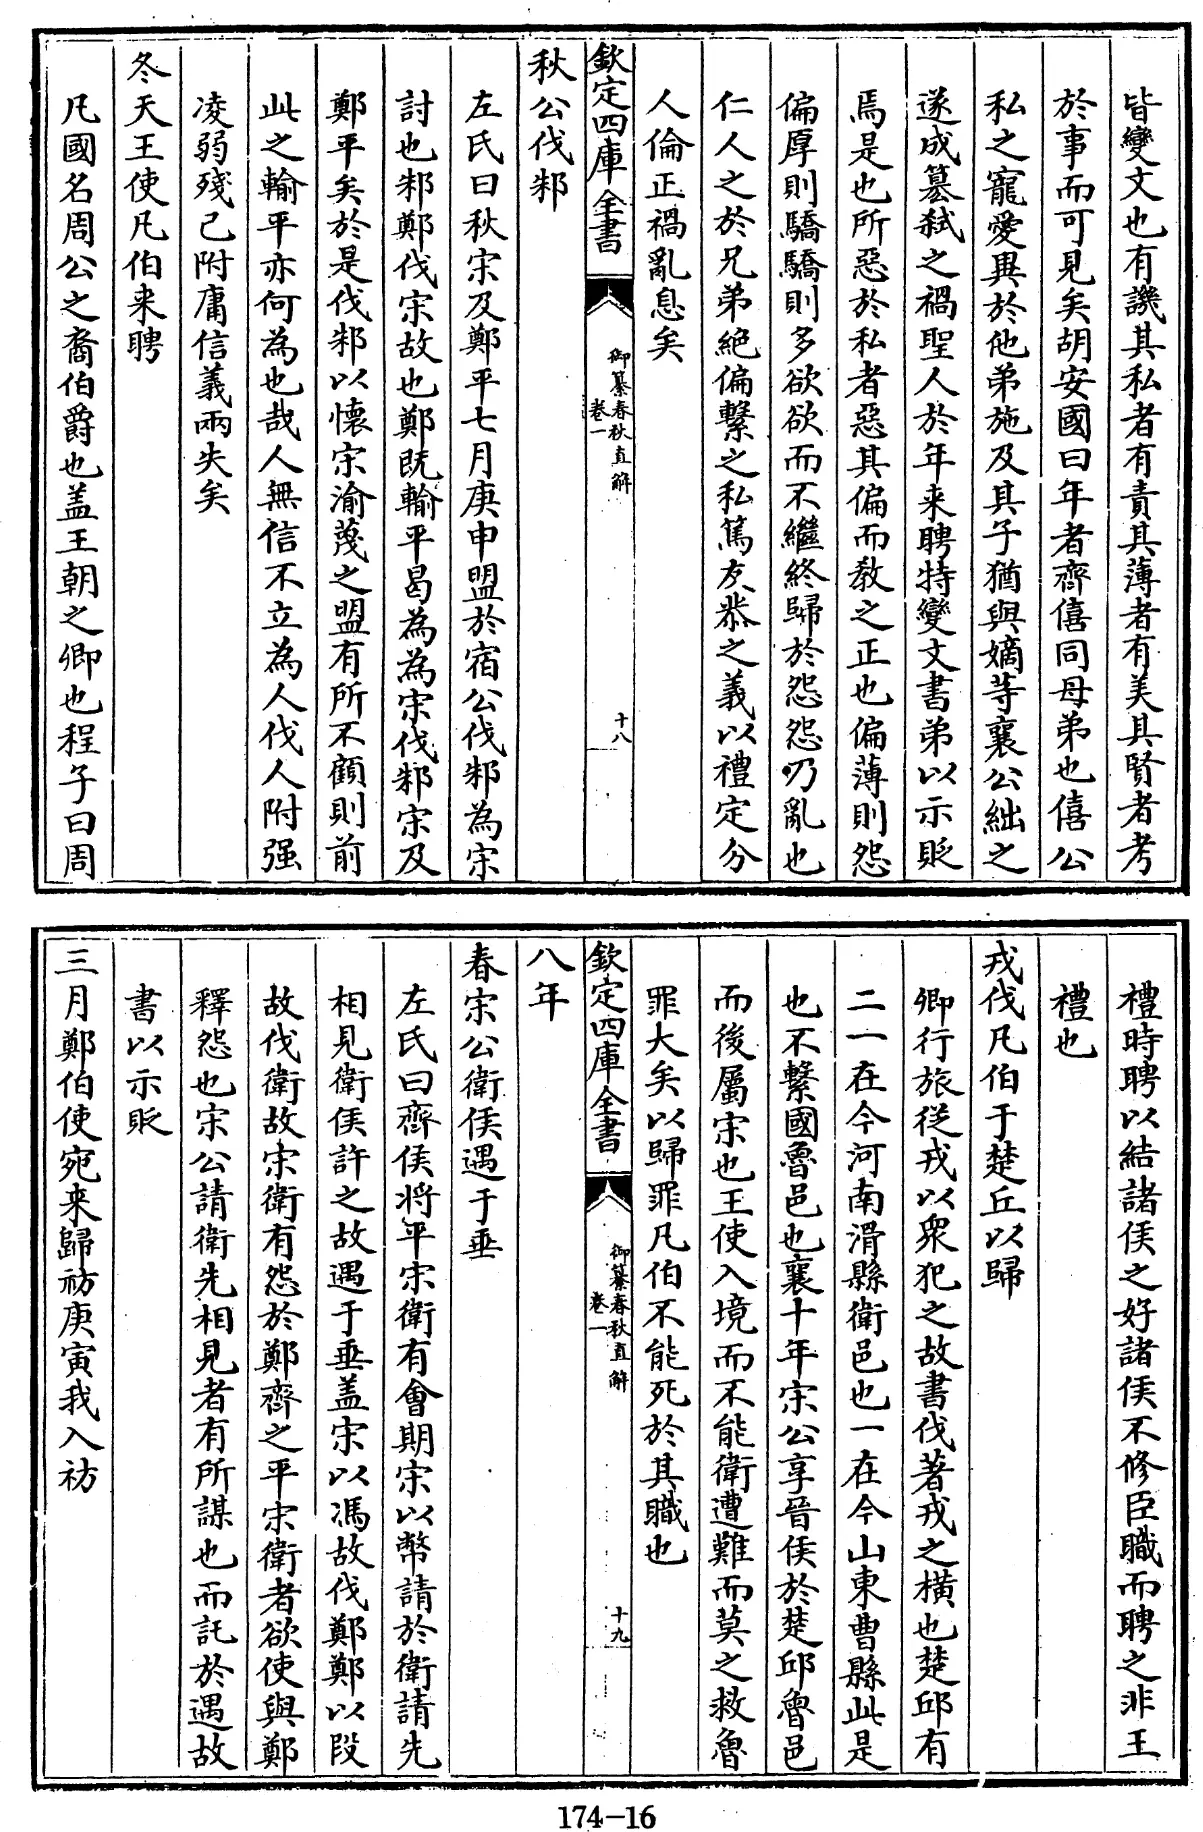 皆變文也有譏其私者有責其薄者有美其賢者考
於事而可見矣胡安國曰年者齊僖同母弟也僖公
私之寵愛異於他弟施及其子猶與嫡等襄公絀之
遂成簒弑之禍聖人於年来聘特變文書弟以示貶
焉是也所惡於私者惡其偏而教之正也偏薄則怨
偏厚則驕驕則多欲欲而不繼終歸於怨怨乃亂也
仁人之於兄弟絶偏繫之私篤友恭之義以禮定分
人倫正禍亂息矣
欽定四庫全書
御纂春秋直解
卷一
十八
秋公伐邾
左氏曰秋宋及鄭平七月庚申盟於宿公伐邾為宋
討也邾鄭伐宋故也鄭既輸平曷為為宋伐邾宋及
鄭平矣於是伐邾以懷宋渝蔑之盟有所不顧則前
此之輸平亦何為也哉人無信不立為人伐人附强
凌弱殘己附庸信義兩失矣
冬天王使凡伯来聘
凡國名周公之裔伯爵也盖王朝之卿也程子曰周
禮時聘以結諸侯之好諸侯不修臣職而聘之非王
禮也
戎伐凡伯于楚丘以歸
卿行旅從戎以衆犯之故書伐著戎之横也楚邱有
二一在今河南滑縣衛邑也一在今山東曹縣此是
也不繫國魯邑也襄十年宋公享晉侯於楚邱魯邑
而後屬宋也王使入境而不能衛遭難而莫之救魯
罪大矣以歸罪凡伯不能死於其職也
欽定四庫全書
御纂春秋直解
卷一
十九
八年
春宋公衛侯遇于垂
左氏曰齊侯将平宋衛有會期宋以幣請於衛請先
相見衛侯許之故遇于垂盖宋以馮故伐鄭鄭以段
故伐衛故宋衛有怨於鄭齊之平宋衛者欲使與鄭
釋怨也宋公請衛先相見者有所謀也而託於遇故
書以示貶
三月鄭伯使宛来歸祊庚寅我入祊
174-16